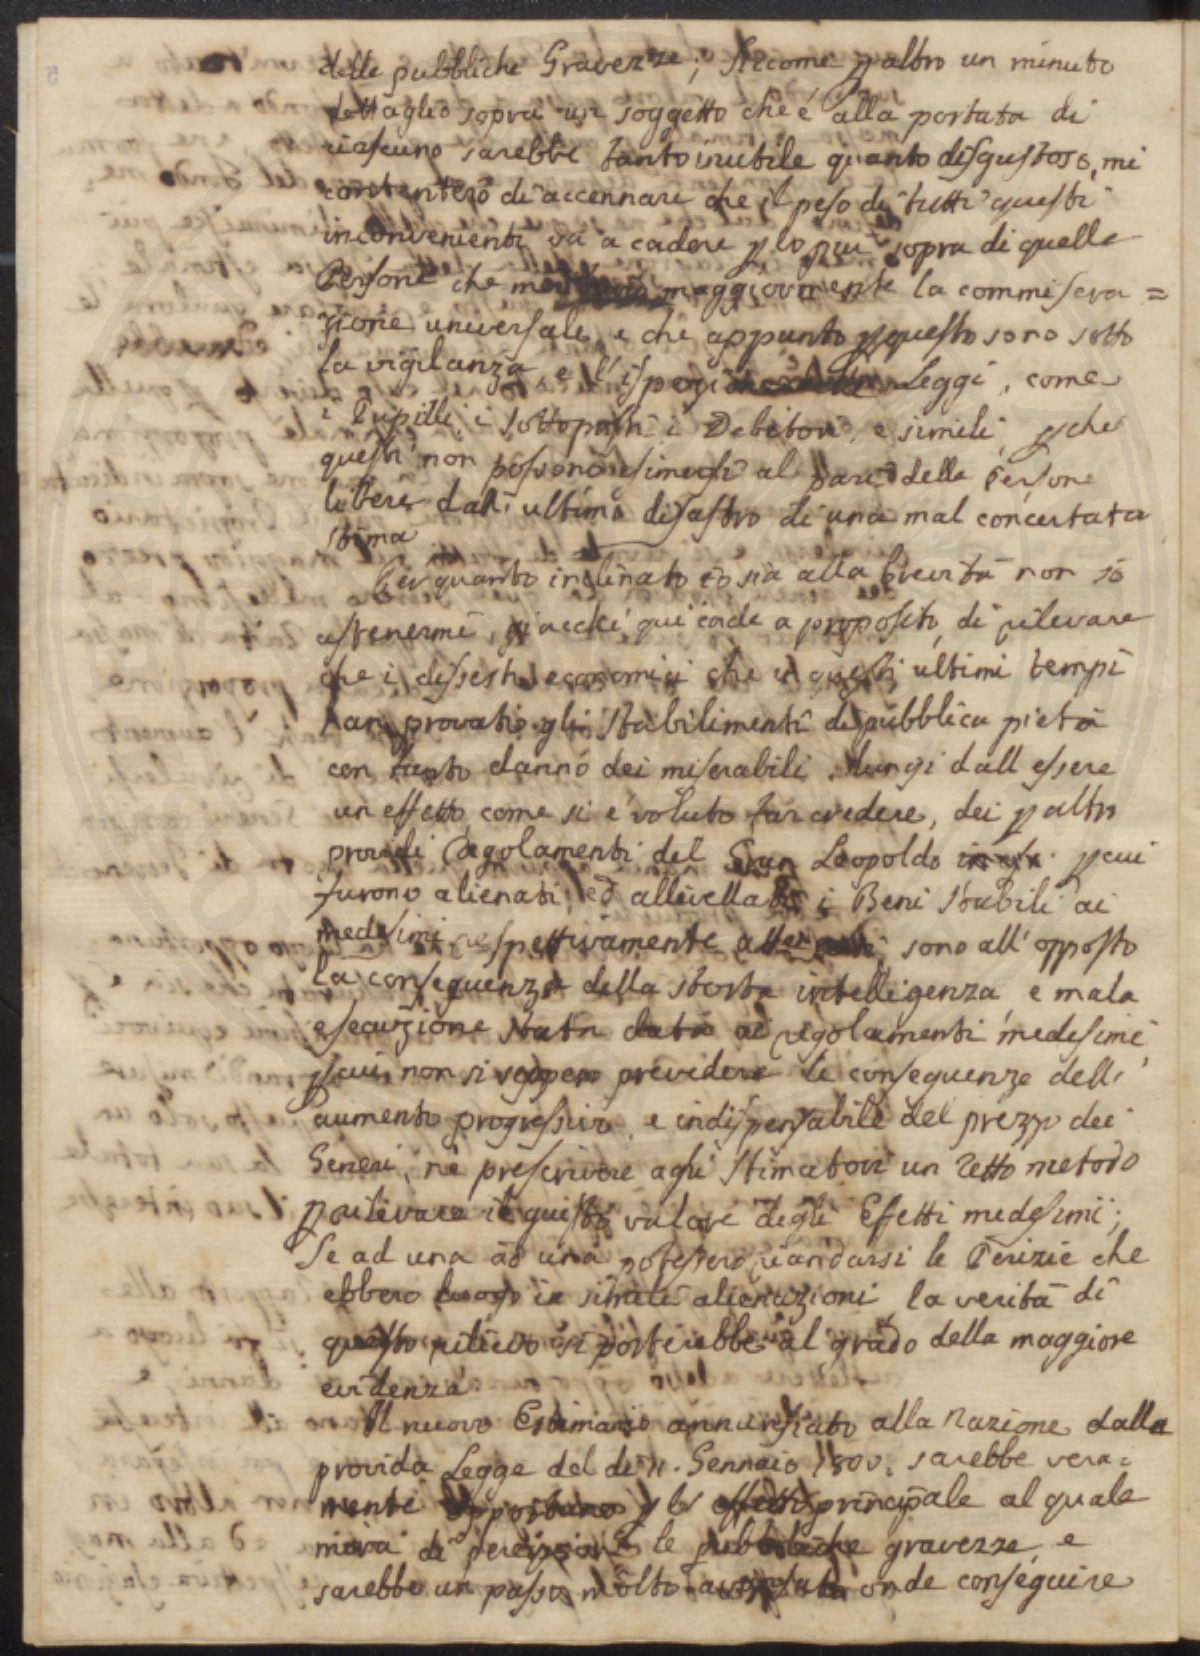 delle pubbliche Gravezze; Siccome p altro un minuto
dettaglio sopra un soggetto che è alla portata di
ciascuno sarebbe tanto inutile quanto disgustoso, mi
contenterò di accennare che il peso di tutti questi
inconvenienti và a cadere p lo più sopra di quelle
Persone che maggiormente la commisera=
zione universale, e che appunto p questo sono sotto
la vigilanza e l'ispezione delle Leggi, come
i Pupilli, i Sottoposti i Debitori, e simili, p che
questi non possono esimersi al pari delle Persone
libere dall'ultimo disastro di una mal concertata
stima
Per quanto inclinato io sia alla brevità non sò
astenermi, giacchè quì cade a proposito, di rilevare
che i dissesti economici che in questi ultimi tempi
han provato gli Stabilimenti di pubblica pietà
con tanto danno dei miserabili, lungi dall essere
un effetto, come si è voluto far credere, dei p altro
providi Regolamenti del Gran Leopoldo p cui
furono alienati, ed allivellati i Beni Stabili ai
medesimi respettivamente sono all'opposto
la conseguenza della storta intelligenza, e mala
esecuzione data ai regolamenti medesimi,
p cui non si seppero prevedere le conseguenze dell'
aumento progressivo, e indispensabile del prezzo dei
Generi, nè prescrivere agli Stimatori un retto metodo
p rilevare il giusto valore degli Effetti medesimi;
Se ad una ad una potessero riandarsi le Perizie che
ebbero luogo in simili alienazioni la verità di
questo rilievo si porterebbe al grado della maggiore
evidenza
Il nuovo Estimario annunziato alla Nazione dalla
provida Legge del dì 11. Gennaio 1800. sarebbe vera=
mente opportuno p lo effetto principale al quale
mira di le pubbliche gravezze, e
sarebbe un passo molto onde conseguire